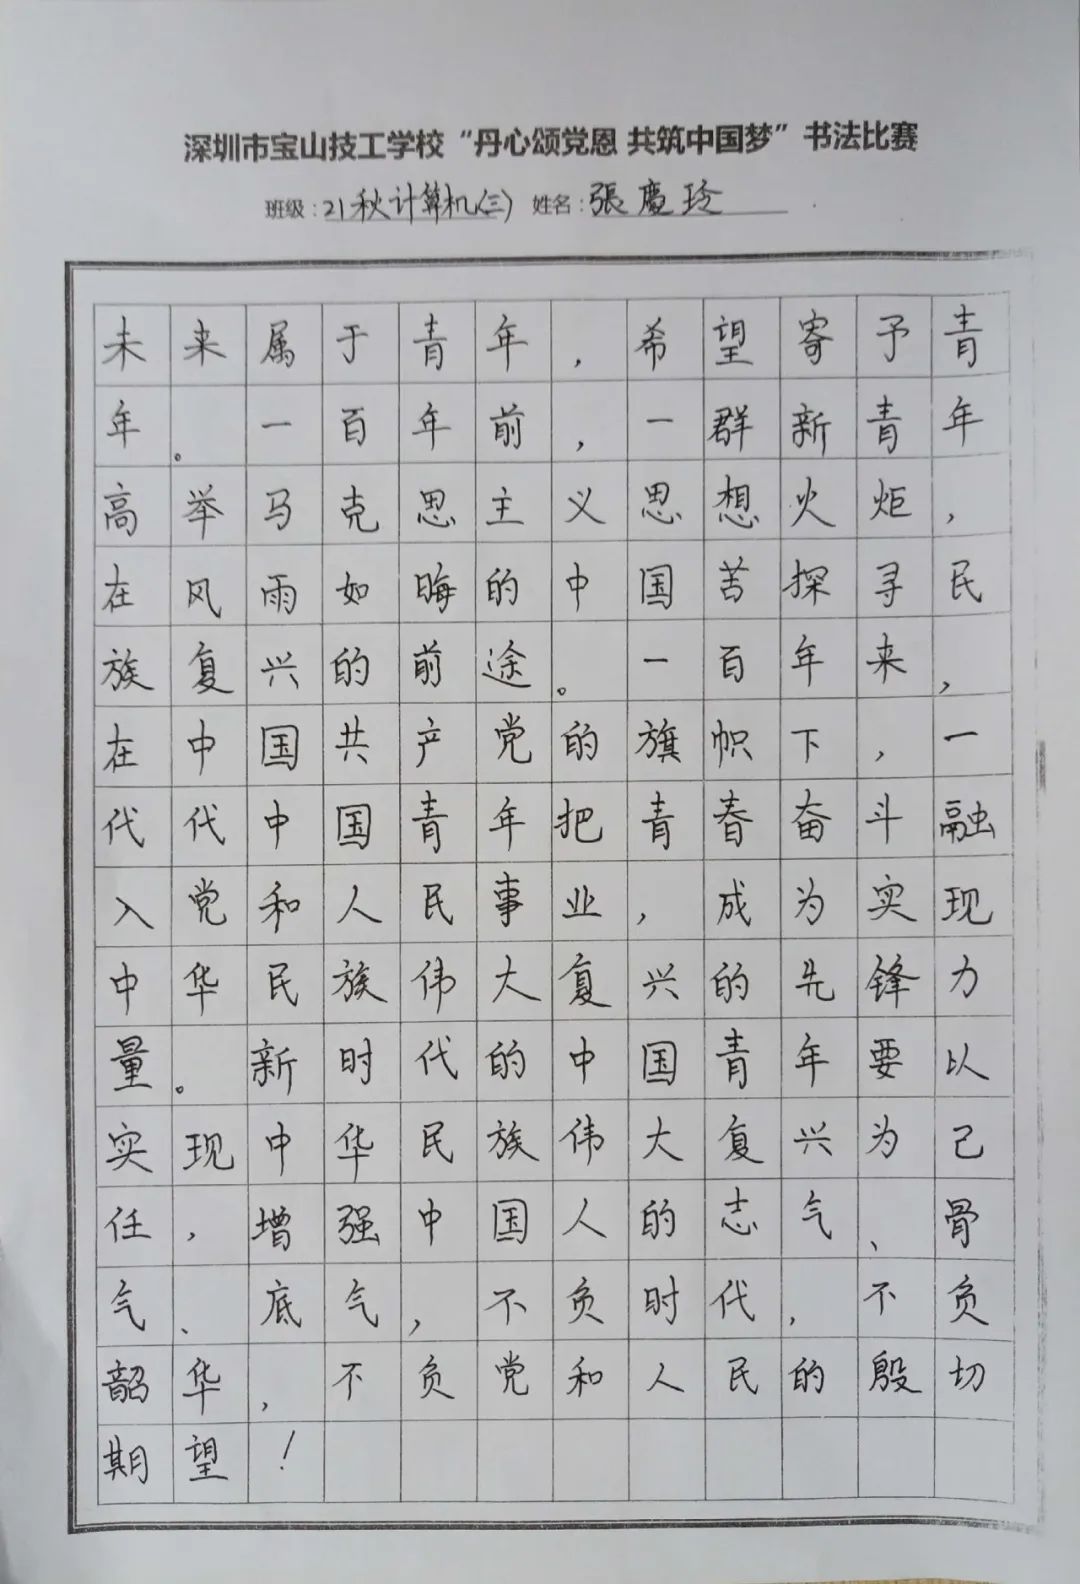 深圳市宝山技工学校“丹心颂党恩 共筑中国梦”书法比赛
班级：21秋计算机(三) 姓名：張慶玲
未来属于青年，希望寄予青
年。一百年前，一群新青年
高举马克思主义思想火炬，
在风雨如晦的中国苦探寻民
族复兴的前途。一百年来，
在中国共产党的旗帜下，一
代代中国青年把青春奋斗融
入党和人民事业，成为实现
中华民族伟大复兴的先锋力
量。新时代的中国青年要以
实现中华民族伟大复兴为己
任，增强中国人的志气、骨
气、底气，不负时代，不负
韶华，不负党和人民的殷切
期望！